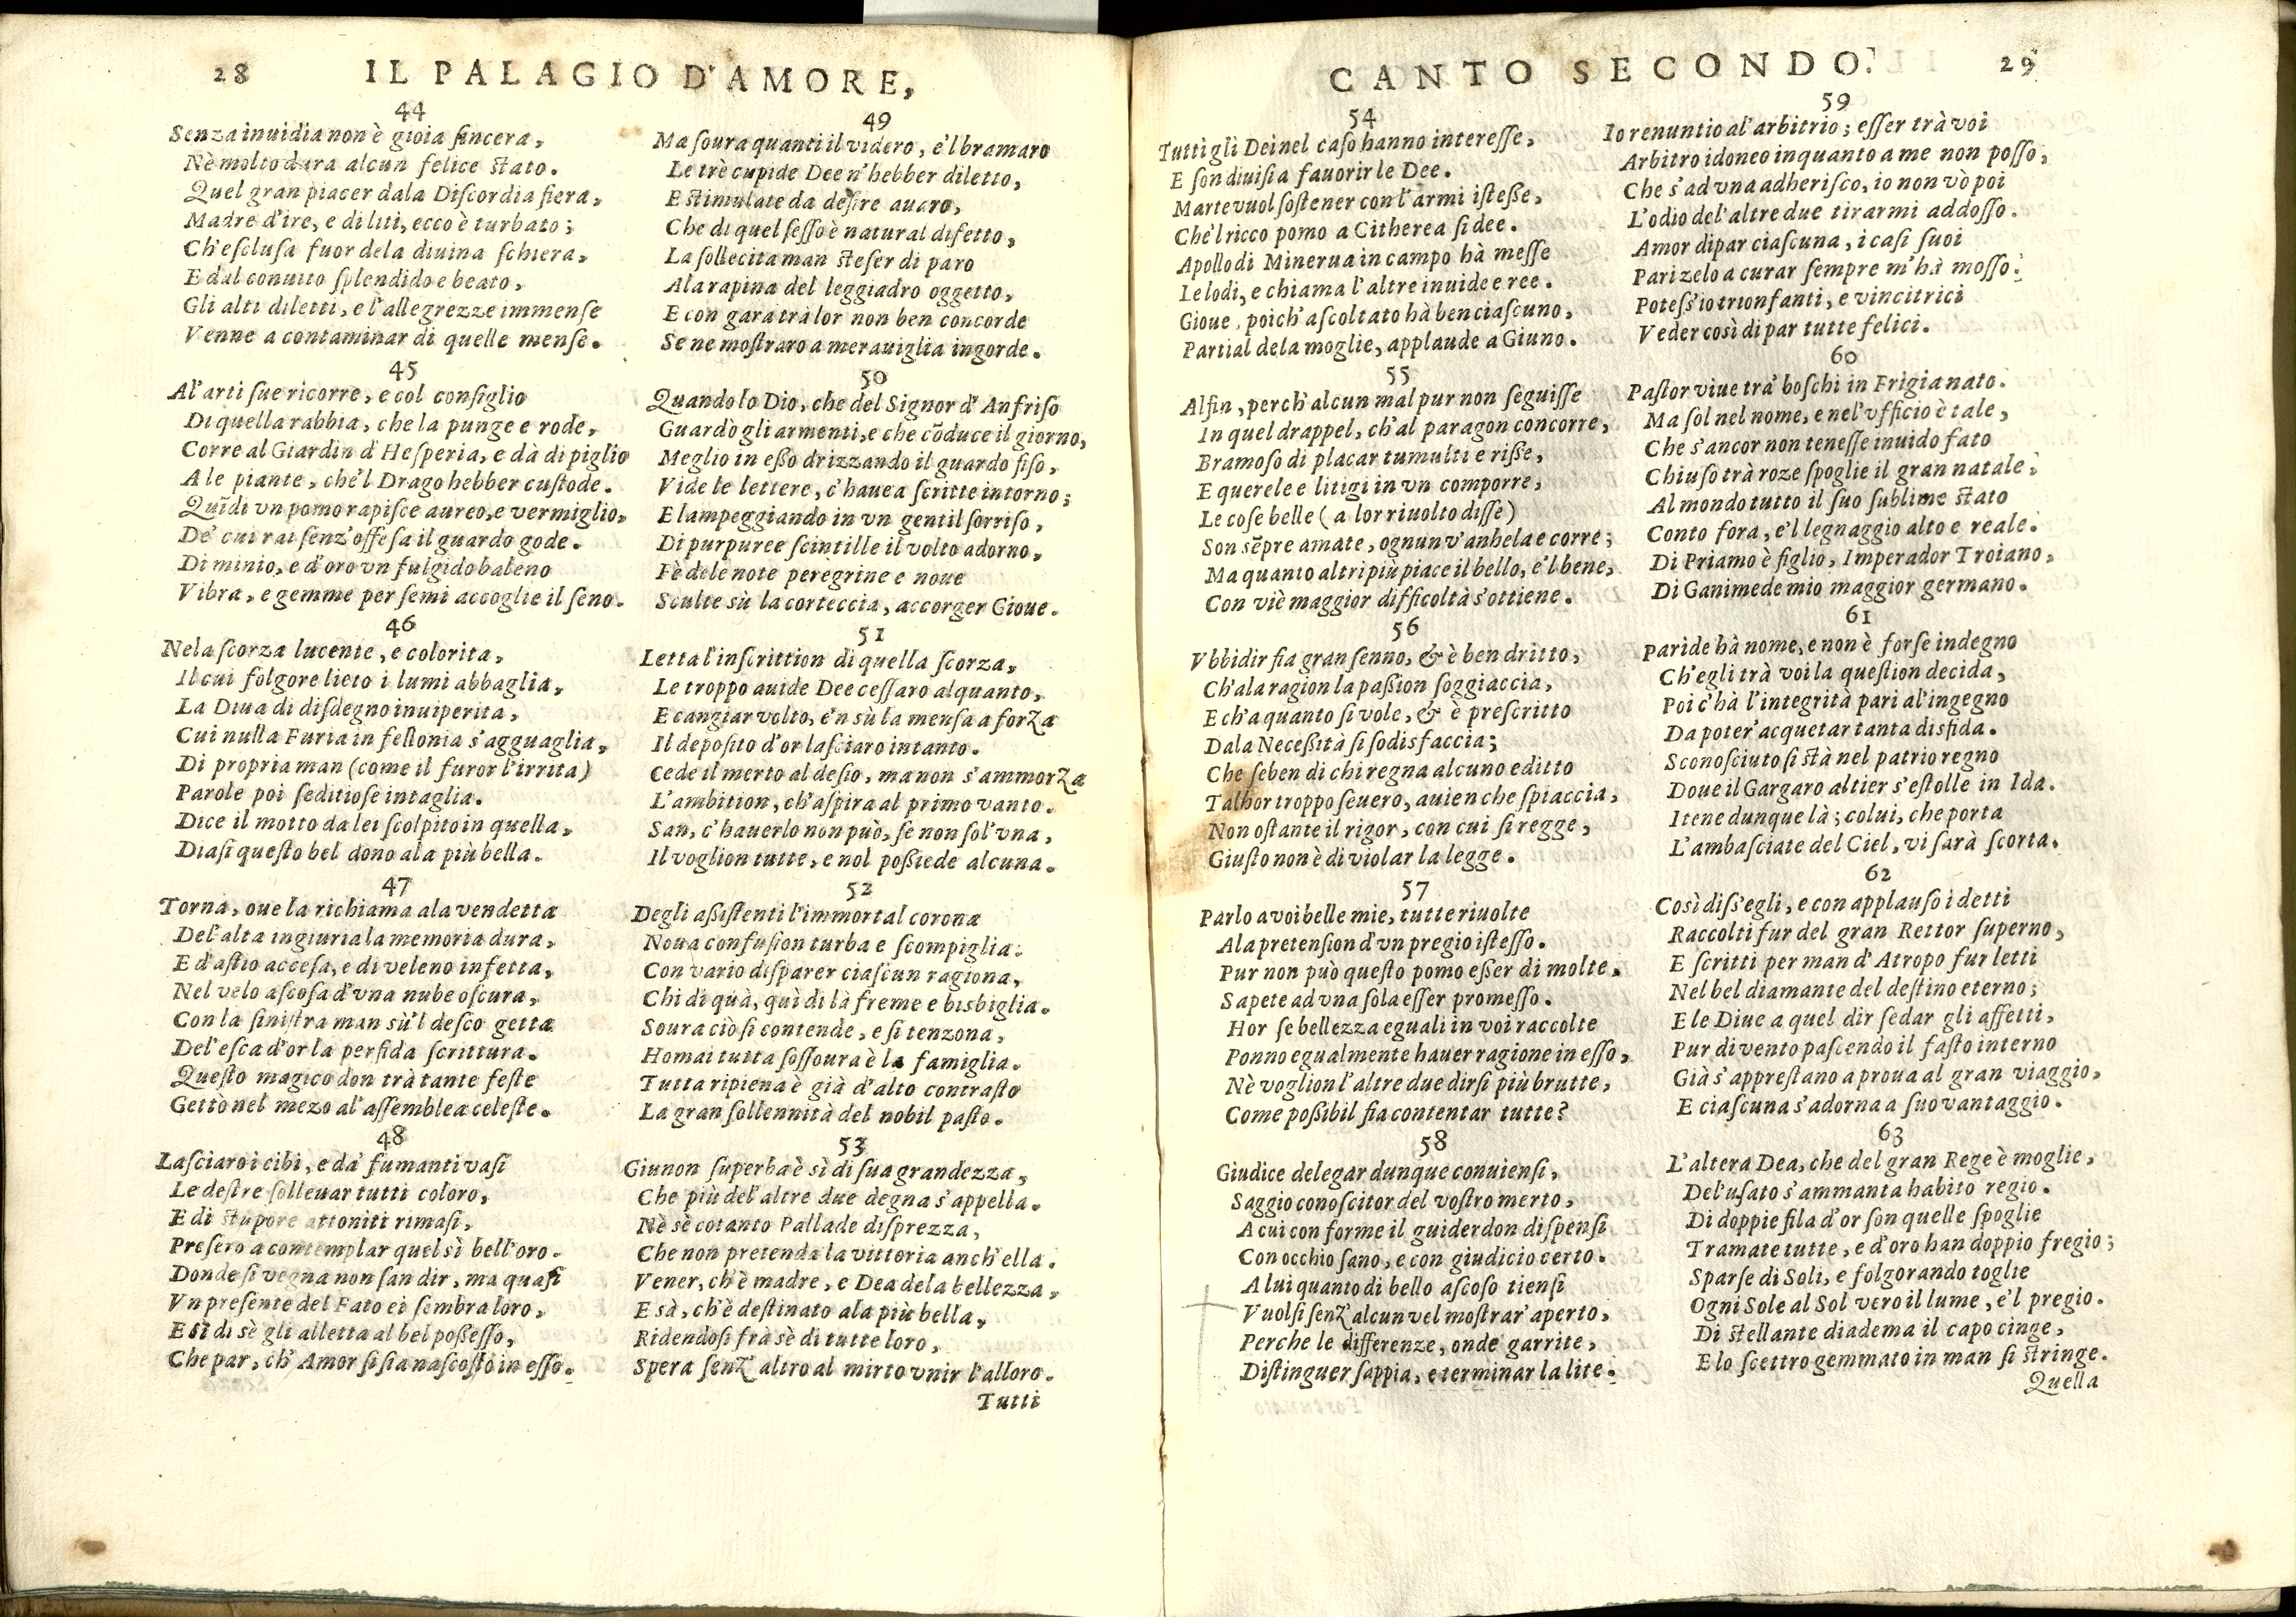 28 IL PALAGIO D'AMORE,
44
Senza inuidia non è gioia sincera,
Nè molto dura alcun felice stato.
Quel gran piacer dala Discordia fiera,
Madre d'ire, e di liti, ecco è turbato;
Ch'esclusa fuor dela diuina schiera,
E dal conuito splendido e beato,
Gli alti diletti, e l'allegrezze immense
Venne a contaminar di quelle mense.
45
Al'arti sue ricorre, e col consiglio
Di quella rabbia, che la punge e rode,
Corre al Giardin d'Hesperia, e dà di piglio
A le piante, che'l Drago hebber custode.
Quĩdi vn pomo rapisce aureo, e vermiglio,
De' cui rai senz'offesa il guardo gode.
Di minio, e d'oro vn fulgido baleno
Vibra, e gemme per semi accoglie il seno.
46
Nela scorza lucente, e colorita,
Il cui folgore lieto i lumi abbaglia,
La Diua di disdegno inuiperita,
Cui nulla Furia in fellonia s'agguaglia,
Di propria man (come il furor l'irrita)
Parole poi seditiose intaglia.
Dice il motto da lei scolpito in quella,
Diasi questo bel dono ala più bella.
47
Torna, oue la richiama ala vendetta
Del'alta ingiuria la memoria dura,
E d'astio accesa, e di veleno infetta,
Nel velo ascosa d'vna nube oscura,
Con la sinistra man sù'l desco getta
Del'esca d'or la perfida scrittura.
Questo magico don trà tante feste
Gettò nel mezo al'assemblea celeste.
48
Lasciaro i cibi, e da' fumanti vasi
Le destre solleuar tutti coloro,
E di stupore attoniti rimasi,
Presero a contemplar quel sì bell'oro.
Donde si vegna non san dir, ma quasi
Vn presente del Fato ei sembra loro,
E sì di sè gli alletta al bel possesso,
Che par, ch'Amor si sia nascosto in esso.
49
Ma soura quanti il videro, e'l bramaro
Le trè cupide Dee n'hebber diletto,
E stimulate da desire auaro,
Che di quel sesso è natural difetto,
La sollecita man steser di paro
Ala rapina del leggiadro oggetto,
E con gara trà lor non ben concorde
Se ne mostraro a merauiglia ingorde.
50
Quando lo Dio, che del Signor d'Anfriso
Guardò gli armenti, e che cõduce il giorno,
Meglio in esso drizzando il guardo fiso,
Vide le lettere, c'hauea scritte intorno;
E lampeggiando in vn gentil sorriso,
Di purpuree scintille il volto adorno,
Fè dele note peregrine e noue
Sculte sù la corteccia, accorger Gioue.
51
Letta l'inscrittion di quella scorza,
Le troppo auide Dee cessaro alquanto,
E cangiar volto, e'n sù la mensa a forza
Il deposito d'or lasciaro intanto.
Cede il merto al desio, ma non s'ammorza
L'ambition, ch'aspira al primo vanto.
San, c'hauerlo non può, se non sol'vna,
Il voglion tutte, e nol possiede alcuna.
52
Degli assistenti l'immortal corona
Noua confusion turba e scompiglia.
Con vario disparer ciascun ragiona,
Chi di quà, quì di là freme e bisbiglia.
Soura ciò si contende, e si tenzona,
Homai tutta sossoura è la famiglia.
Tutta ripiena è già d'alto contrasto
La gran sollennità del nobil pasto.
53
Giunon superba è sì di sua grandezza,
Che più del'altre due degna s'appella.
Nè sè cotanto Pallade disprezza,
Che non pretenda la vittoria anch'ella.
Vener, ch'è madre, e Dea dela bellezza,
E sà, ch'è destinato ala più bella,
Ridendosi frà sè di tutte loro,
Spera senz'altro al mirto vnir l'alloro.
Tutti
CANTO SECONDO. 29
54
Tutti gli Dei nel caso hanno interesse,
E son diuisi a fauorir le Dee.
Marte vuol sostener con l'armi istesse,
Che'l ricco pomo a Citherea si dee.
Apollo di Minerua in campo hà messe
Le lodi, e chiama l'altre inuide e ree.
Gioue, poich'ascoltato hà ben ciascuno,
Partial dela moglie, applaude a Giuno.
55
Alfin, perch'alcun mal pur non seguisse
In quel drappel, ch'al paragon concorre,
Bramoso di placar tumulti e risse,
E querele e litigi in vn comporre,
Le cose belle (a lor riuolto disse)
Son sẽpre amate, ognun v'anhela e corre;
Ma quanto altrui più piace il bello, e'l bene,
Con viè maggior difficoltà s'ottiene.
56
Vbbidir fia gran senno, & è ben dritto,
Ch'ala ragion la passion soggiaccia,
E ch'a quanto si vole, & è prescritto
Dala Necessità si sodisfaccia;
Che seben di chi regna alcuno editto
Talhor troppo seuero, auien che spiaccia,
Non ostante il rigor, con cui si regge,
Giusto non è di violar la legge.
57
Parlo a voi belle mie, tutte riuolte
Ala pretension d'vn pregio istesso.
Pur non può questo pomo esser di molte,
Sapete ad vna sola esser promesso.
Hor se bellezza eguali in voi raccolte
Ponno egualmente hauer ragione in esso,
Nè voglion l'altre due dirsi più brutte,
Come possibil fia contentar tutte?
58
Giudice delegar dunque conuiensi,
Saggio conoscitor del vostro merto,
A cui conforme il guiderdon dispensi
Con occhio sano, e con giudicio certo.
A lui quanto di bello ascoso tiensi
Vuolsi senz'alcun vel mostrar'aperto,
Perche le differenze, onde garrite,
Distinguer sappia, e terminar la lite.
59
Io renuntio al'arbitrio; esser trà voi
Arbitro idoneo in quanto a me non posso,
Che s'ad vna adherisco, io non vò poi
L'odio del'altre due tirarmi addosso.
Amor di par ciascuna, i casi suoi
Pari zelo a curar sempre m'hà mosso.
Potess'io trionfanti, e vincitrici
Veder così di par tutte felici.
60
Pastor viue trà boschi in Frigia nato.
Ma sol nel nome, e nel'vfficio è tale,
Che s'ancor non tenesse inuido fato
Chiuso trà roze spoglie il gran natale,
Al mondo tutto il suo sublime stato
Conto fora, e'l legnaggio alto e reale.
Di Priamo è figlio, Imperador Troiano,
Di Ganimede mio maggior germano.
61
Paride hà nome, e non è forse indegno
Ch'egli trà voi la question decida,
Poi c'hà l'integrità pari al'ingegno
Da poter'acquetar tanta disfida.
Sconosciuto si stà nel patrio regno
Doue il Gargaro altier s'estolle in Ida.
Itene dunque là; colui, che porta
L'ambasciate del Ciel, vi sarà scorta.
62
Così diss'egli, e con applauso i detti
Raccolti fur del gran Rettor superno,
E scritti per man d'Atropo fur letti
Nel bel diamante del destino eterno;
E le Diue a quel dir sedar gli affetti,
Pur di vento pascendo il fasto interno
Già s'apprestano a proua al gran viaggio,
E ciascuna s'adorna a suo vantaggio.
63
L'altera Dea, che del gran Rege è moglie,
Del'usato s'ammanta habito regio.
Di doppie fila d'or son quelle spoglie
Tramate tutte, e d'oro han doppio fregio;
Sparse di Soli, e folgorando toglie
Ogni Sole al Sol vero il lume, e'l pregio.
Di stellante diadema il capo cinge,
E lo scettro gemmato in man si stringe.
Quella